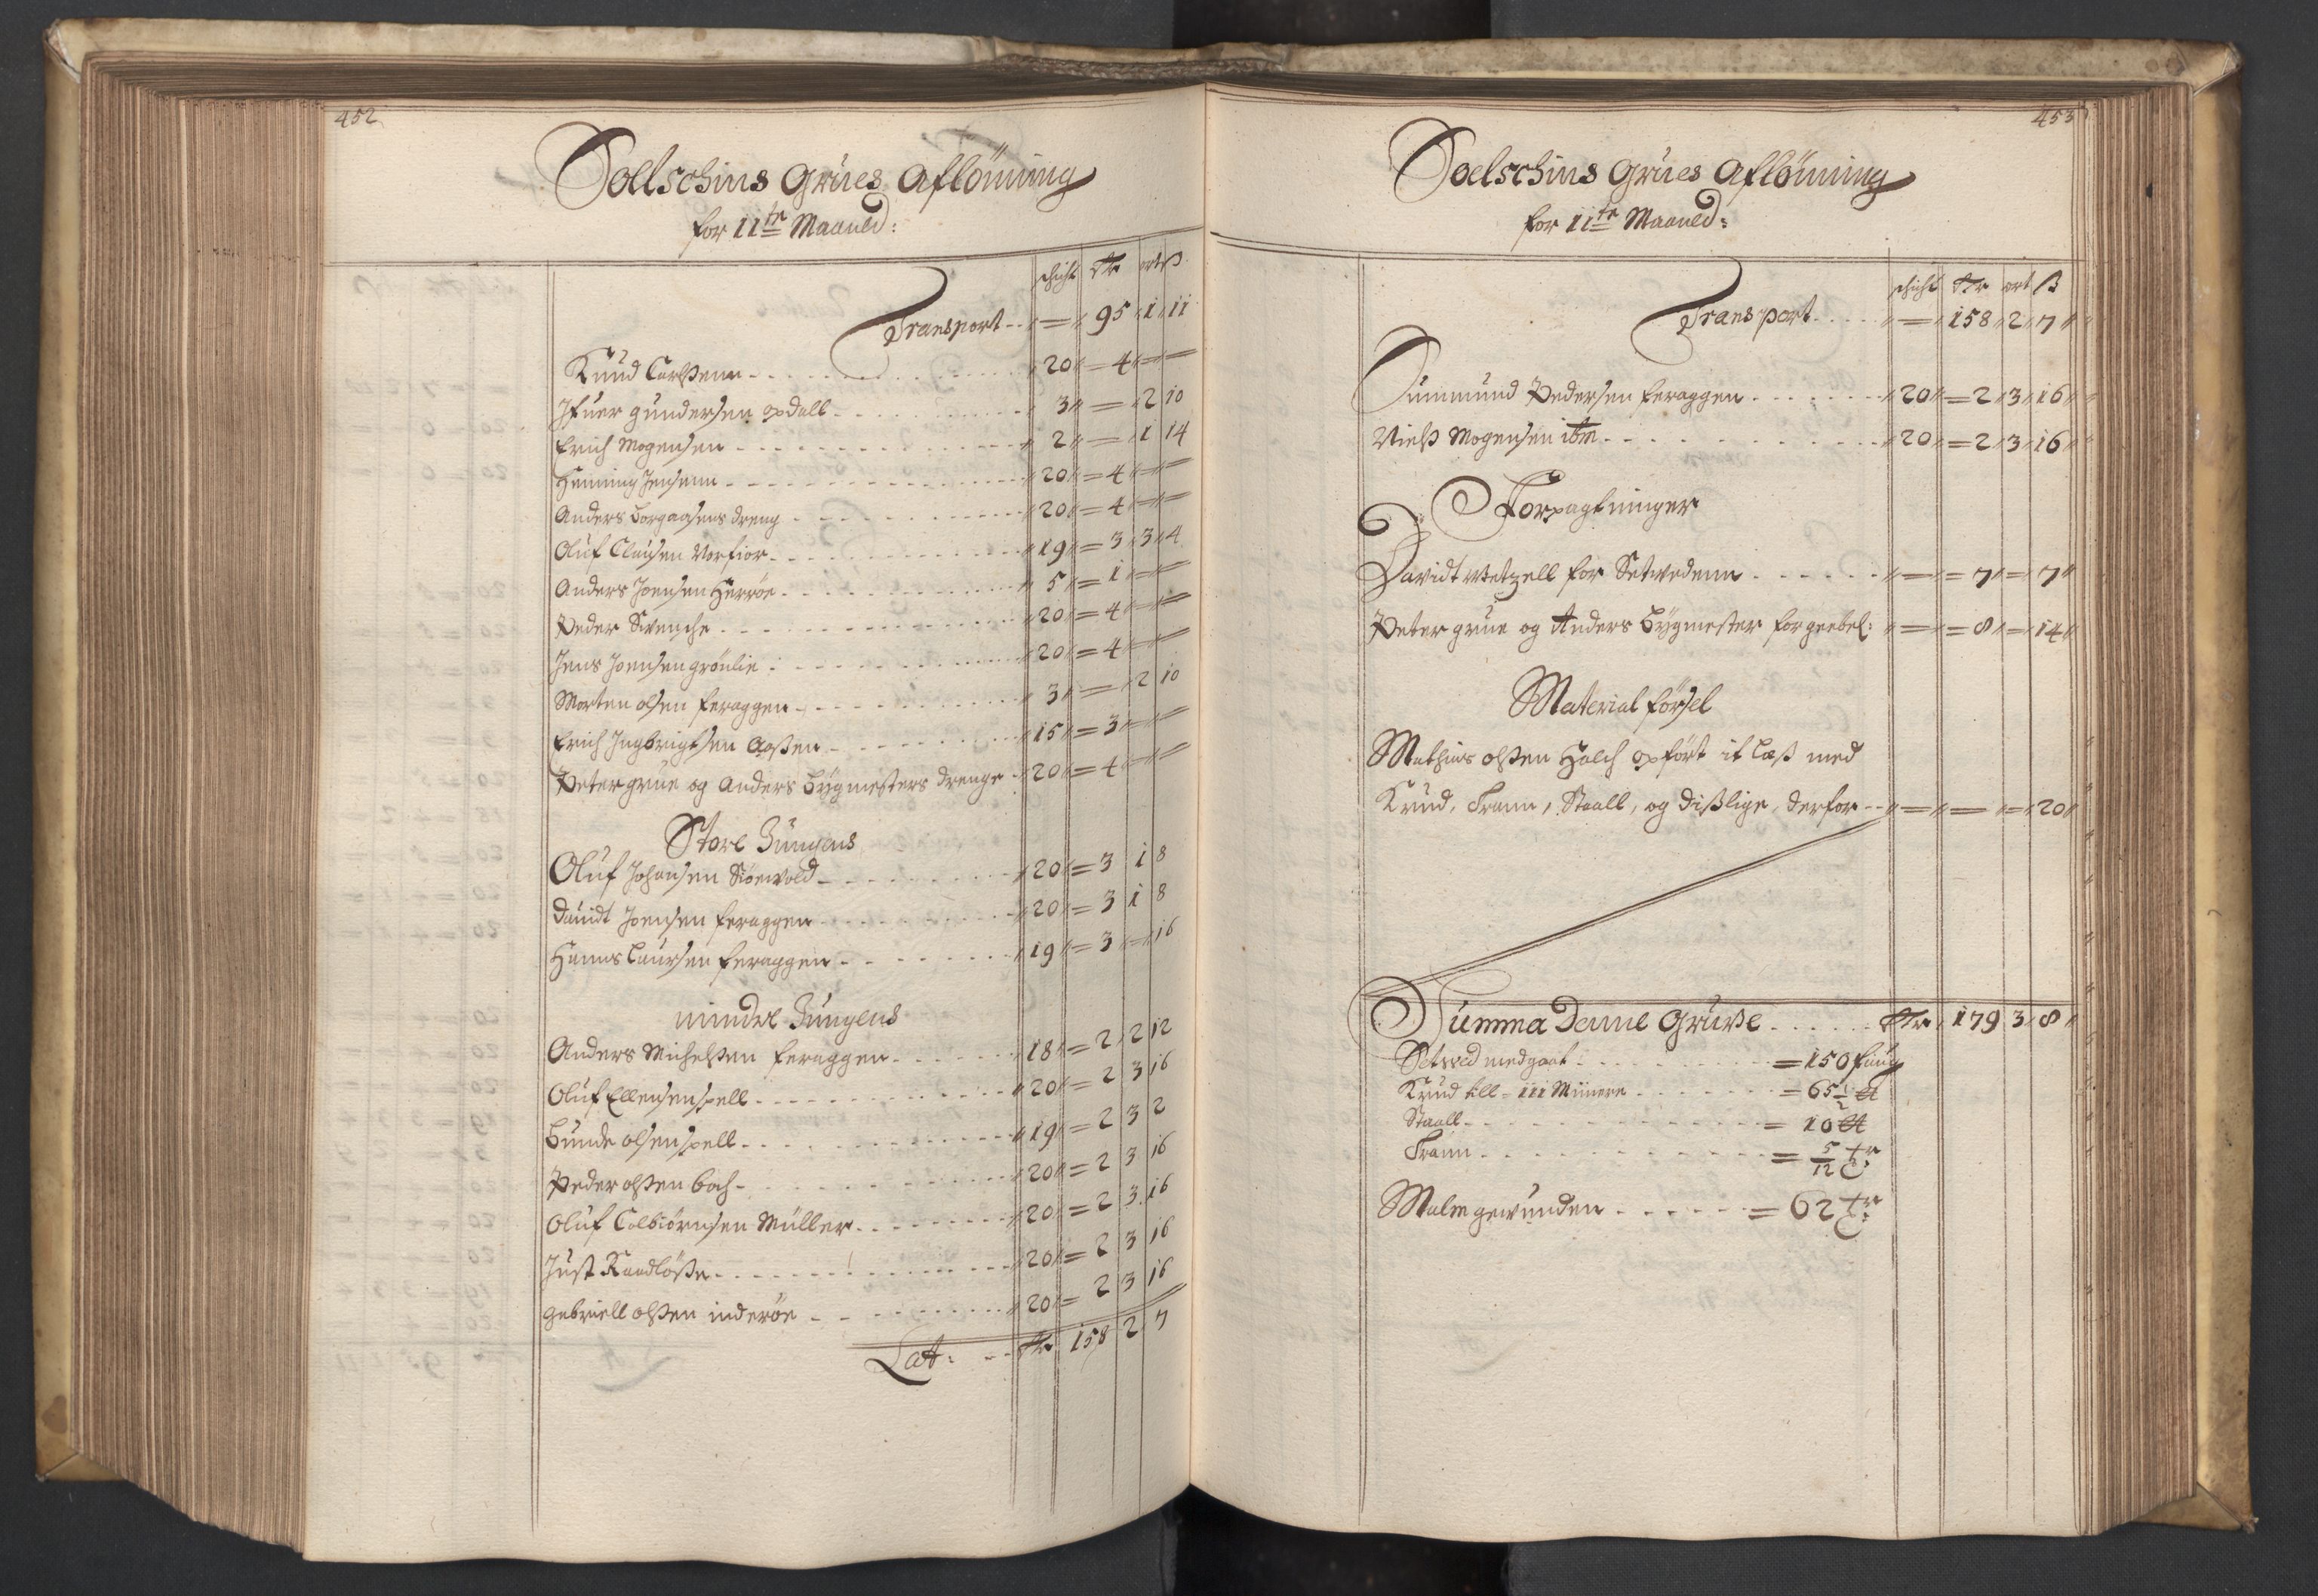 452
Soelschins Grues Aflönning
for 11te Maaned:
schicht Rdr ort ß
Transport - - " = " 95 " 1 " 11
Knud Carlsenn - 20 " = 4 " = " =
Ifuer Gundersen opdall - 3 " = " 2 10
Erich Mogensen - 2 " = " 1 14
Henning Jensenn - 20 " = 4 " = " =
Anders Borgaasens dreng - 20 " = 4 " = " =
Oluf Clausen - 19 " = 3 " 3 " 4
Anders Joensen Herröe - 5 " = 1 " = " =
Peder Svensche - 20 " = 4 " = " =
Jens Joensen grönlie - 20 " = 4 " = " =
Morten olsen feraggen - 3 " = " 2 10
Erich Ingbrigtsen Aaßen - 15 " = 3 " = " =
Peter grue og Anders Bÿgmesters drenge - 20 " = 4 " = " =
Store Jungens
Oluf Johansen - 20 " = 3 1 8
Dauidt Joensen feraggen - 20 " = 3 1 8
Hanns Laursen feraggen - 19 " = 3 " = " 16
mindre Jungens
Anders Michelßen feraggen - 18 " = 2 2 12
Oluf Ellensen spell - 20 " = 2 3 16
Bunde olsen spell - 19 " = 2 3 2
Peder olßen bach - 20 " = 2 3 16
Oluf Colbiörnsen Müller - 20 " = 2 3 16
Just - 20 " = 2 3 16
gabriell olßen inderöe - 20 " = 2 3 16
Lat: - - Rdr 158 2 7
453
Soelschins Grues Aflönning
for 11te Maaned:
schicht Rdr ort ß
Transport " = " 158 " 2 " 7 "
Gummund Pedersen feraggen - " 20 " = 2 " 3 " 16 "
Nielß Mogensen itm - " 20 " = 2 " 3 " 16 "
Forpagtninger
Davidt Wetzell for Setwedenn - " = " = 7 " = 7 "
Peter grue og Anders Bÿgmester for geebel: " = " = 8 " = 14 "
Material försel
Mathias olßen Holch opfört it læß med
Krud, Trann, Staall, og dißlige, derfor - - " = " = " = 20 "
Summa Denne Grube - Rdr " 179 3 " 8 "
Setwed medgaat - = 150 faung
Krud till = 111 Minere - = 65 1/2 ℔
Staall - = 10 ℔
Trann - = 5/12 tr
Malm gewunden - = 62 tr